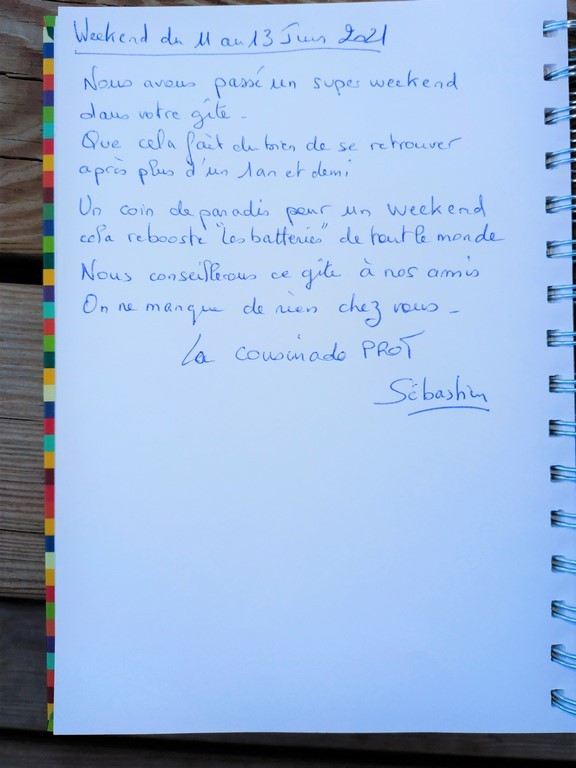 Weekend du 11 au 13 Juin 2021
Nous avons passé un super weekend
dans votre gîte -
Que cela fait du bien de se retrouver
après plus d'un 1 an et demi
Un coin de paradis pour un weekend
cela rebooste "les batteries" de tout le monde
Nous conseillerons ce gîte à nos amis
On ne manque de rien chez vous -
La cousinade PROT
Sébastien